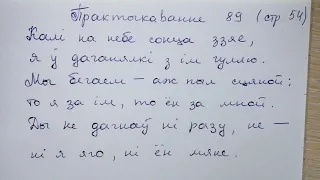 Практыкаванне 89 (стр 54)
Калі на небе сонца ззяе,
я ў даганялкі з ім гуляю.
Мы бегаем – аж пыл сцяной:
то я за ім, то ён за мной.
Ды не дагнаў ні разу, не –
ні я яго, ні ён мяне.